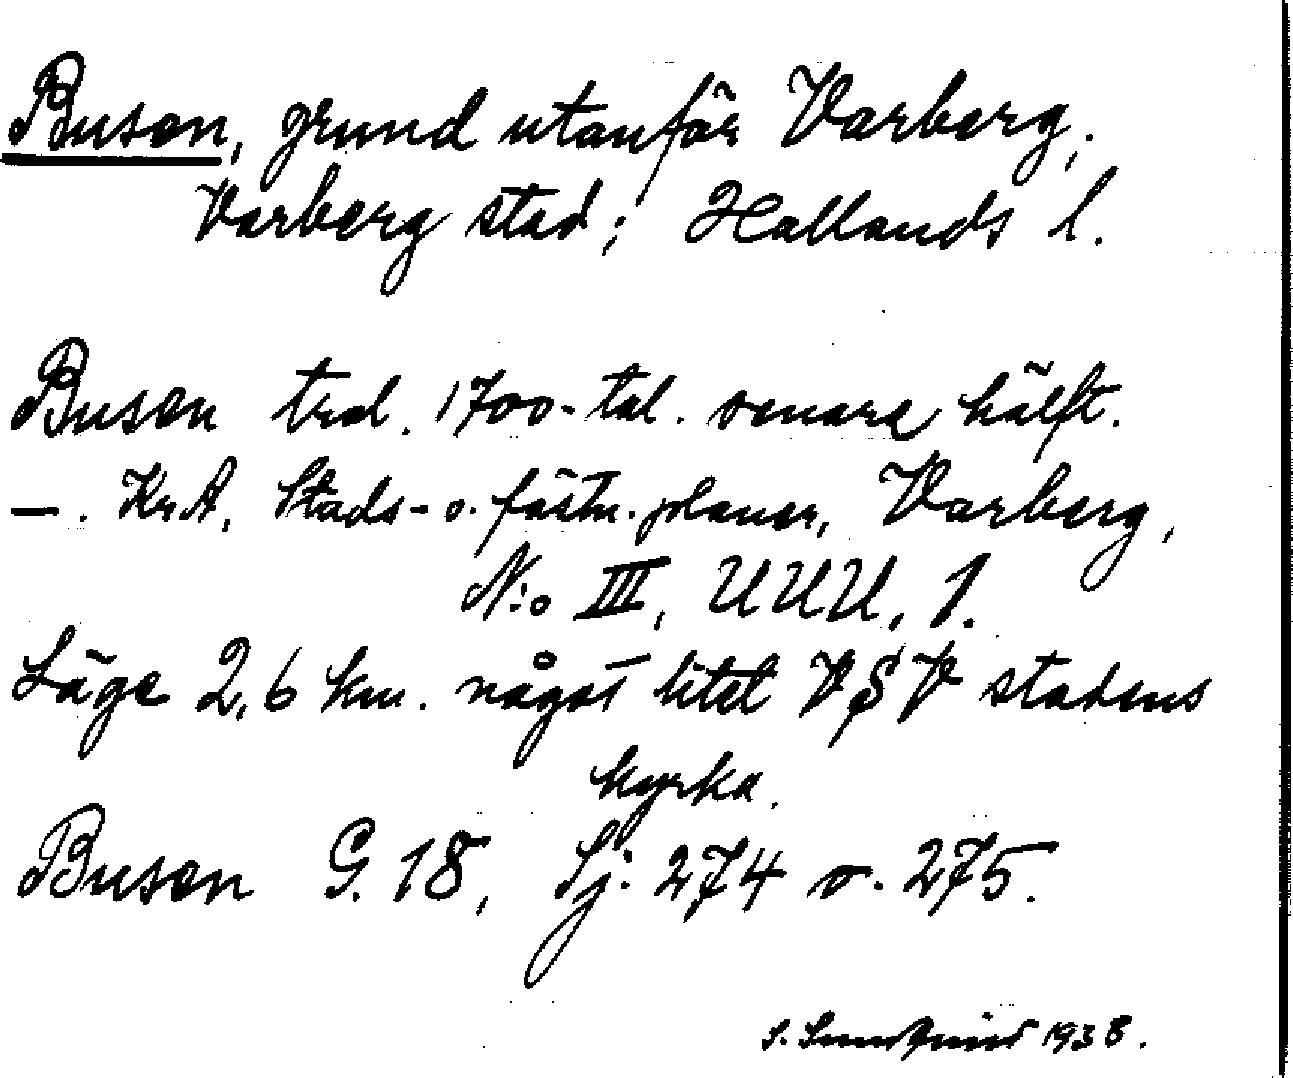 Busen, grund utanför Varberg,
Varberg stad; Hallands l.
Busen trol. 1700-tal. senare hälft.
—. Kr.A. Stads- o. fästn. planer, Varberg,
N:o III, UUU, 1.
Läge 2,6 km. något litet VSV stadens
kyrka.
Busen G. 18, Sj. 274 o. 275.
S. Lundquist 1938.